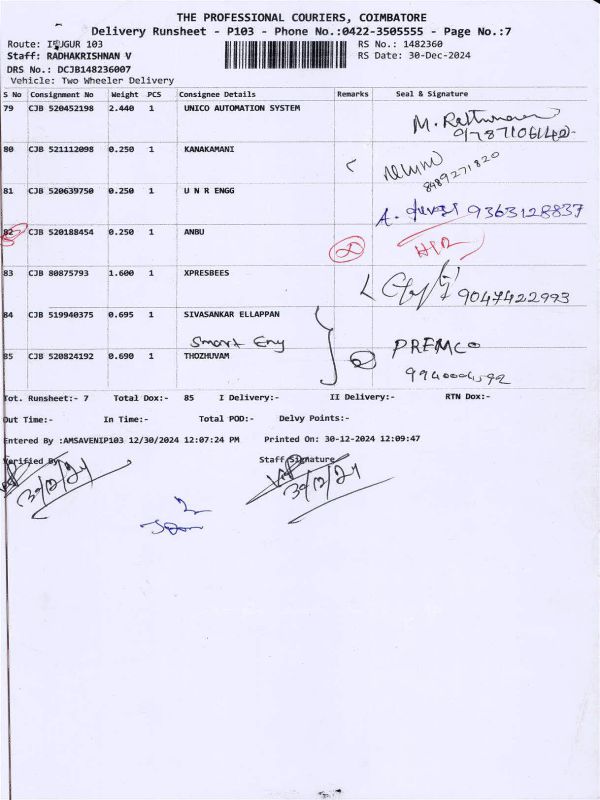 THE PROFESSIONAL COURIERS, COIMBATORE
Delivery Runsheet - P103 - Phone No.:0422-3505555 - Page No.:7
Route: IRUGUR 103 RS No.: 1482360
Staff: RADHAKRISHNAN V RS Date: 30-Dec-2024
DRS No.: DCJB148236007
Vehicle: Two Wheeler Delivery
S No Consignment No Weight PCS Consignee Details Remarks Seal & Signature
79 CJB 520452198 2.440 1 UNICO AUTOMATION SYSTEM
80 CJB 521112098 0.250 1 KANAKAMANI
8489271820
81 CJB 520639750 0.250 1 U N R ENGG
A. 9363128837
82 CJB 520188454 0.250 1 ANBU
83 CJB 80875793 1.600 1 XPRESBEES
9047422993
84 CJB 519940375 0.695 1 SIVASANKAR ELLAPPAN
Smart Eng
85 CJB 520824192 0.690 1 THOZHUVAM
PREMCO
Tot. Runsheet:- 7 Total Dox:- 85 I Delivery:- II Delivery:- RTN Dox:-
Out Time:- In Time:- Total POD:- Delvy Points:-
Entered By :AMSAVENIP103 12/30/2024 12:07:24 PM Printed On: 30-12-2024 12:09:47
Verified By Staff Signature
30/12/24 30/12/24